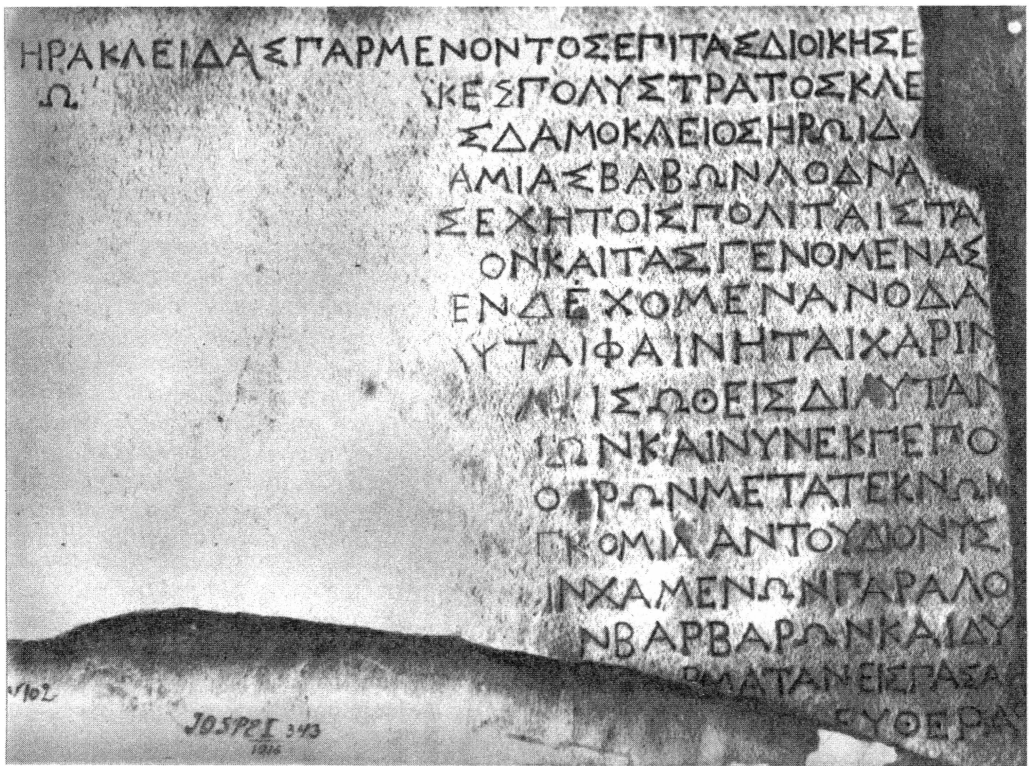 ΗΡΑΚΛΕΙΔΑΣΠΑΡΜΕΝΟΝΤΟΣΕΠΙΤΑΣΔΙΟΙΚΗΣΕ
Ω ΚΕΣΠΟΛΥΣΤΡΑΤΟΣΚΛΕ
ΣΔΑΜΟΚΛΕΙΟΣΗΡΩΙΔΑ
ΑΜΙΑΣΒΑΒΩΝΛΟΔΝΑ
ΣΕΧΗΤΟΙΣΠΟΛΙΤΑΙΣΤΑ
ΟΝΚΑΙΤΑΣΓΕΝΟΜΕΝΑΣ
ΕΝΔΕΧΟΜΕΝΑΝΟΔΑ
ΥΤΑΙΦΑΙΝΗΤΑΙΧΑΡΙΝ
ΙΣΩΘΕΙΣΔΙΑΥΤΑΝ
ΙΩΝΚΑΙΝΥΝΕΚΠΕΠΟ
ΡΩΝΜΕΤΑΤΕΚΝΩΝ
ΓΚΟΜΙΧΑΝΤΟΥΔΙΟΝΥΣ
ΙΝΧΑΜΕΝΩΝΠΑΡΑΛΟ
ΝΒΑΡΒΑΡΩΝΚΑΙΔΥ
ΡΜΑΤΑΝΕΙΣΠΑΣΑ
ΕΥΘΕΡΑ
JOSPEI 343
1916